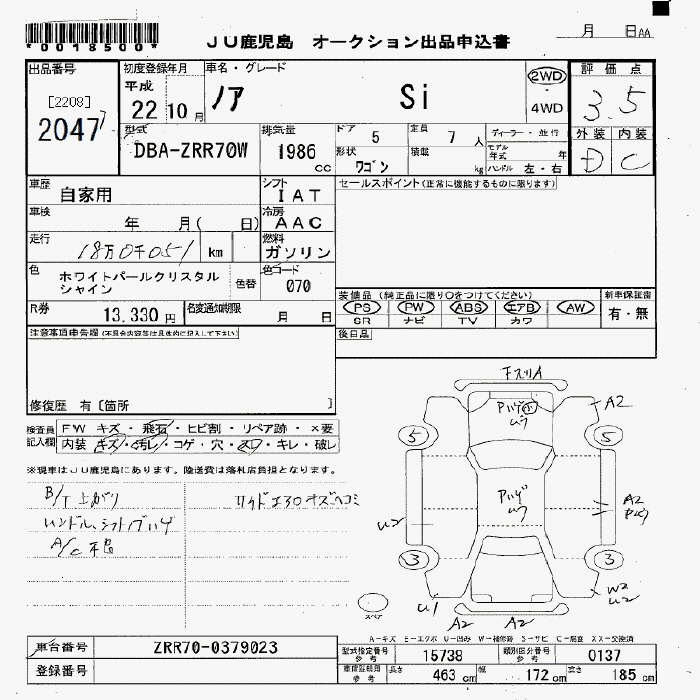 *0018500*
JU鹿児島 オークション出品申込書
月 日AA
出品番号
[2208]
2047
初度登録年月
平成
22 10 月
車名・グレード
ノア Si
2WD
・
4WD
評価点
3.5
外装 内装
D C
型式
DBA-ZRR70W
排気量
1986
cc
ドア 5
定員 7 人
形状 ワゴン
積載 kg
ディーラー・並行
モデル年式 年
ハンドル 左・右
車歴 自家用
シフト IAT
セールスポイント(正常に機能するものに限ります)
車検 年 月( 日)
冷房 AAC
走行 18万0千051 km
燃料 ガソリン
色 ホワイトパールクリスタル
シャイン
色替
色コード 070
装備品 (純正品に限り○をつけてください)
PS PW ABS エアB AW
SR ナビ TV カワ
新車保証書
有・無
R券 13,330 円
名変通知期限 月 日
後日品
注意事項申告欄(不具合内容等は具体的に記入して下さい)
修復歴 有〔箇所 〕
検査員
記入欄
FW キズ・飛石・ヒビ割・リペア跡・×要
内装 キズ・汚レ・コゲ・穴・スレ・キレ・破レ
※現車はJU鹿児島にあります。陸送費は落札店負担となります。
B/T上がり
ハンドル、シフトノブハゲ
A/C不良
下スリA
Pハゲ
A2
5 5
Pハゲ
A2
U2
3 3
W2
U2
U1
スペア
A2 A2
A－キズ E－エクボ U－凹み W－補修跡 S－サビ C－腐食 XX－交換済
車台番号 ZRR70-0379023
登録番号
型式指定番号
参考
15738
類別区分番号
参考
0137
車庫証明用
参考
長さ 463 cm
幅 172 cm
高さ 185 cm